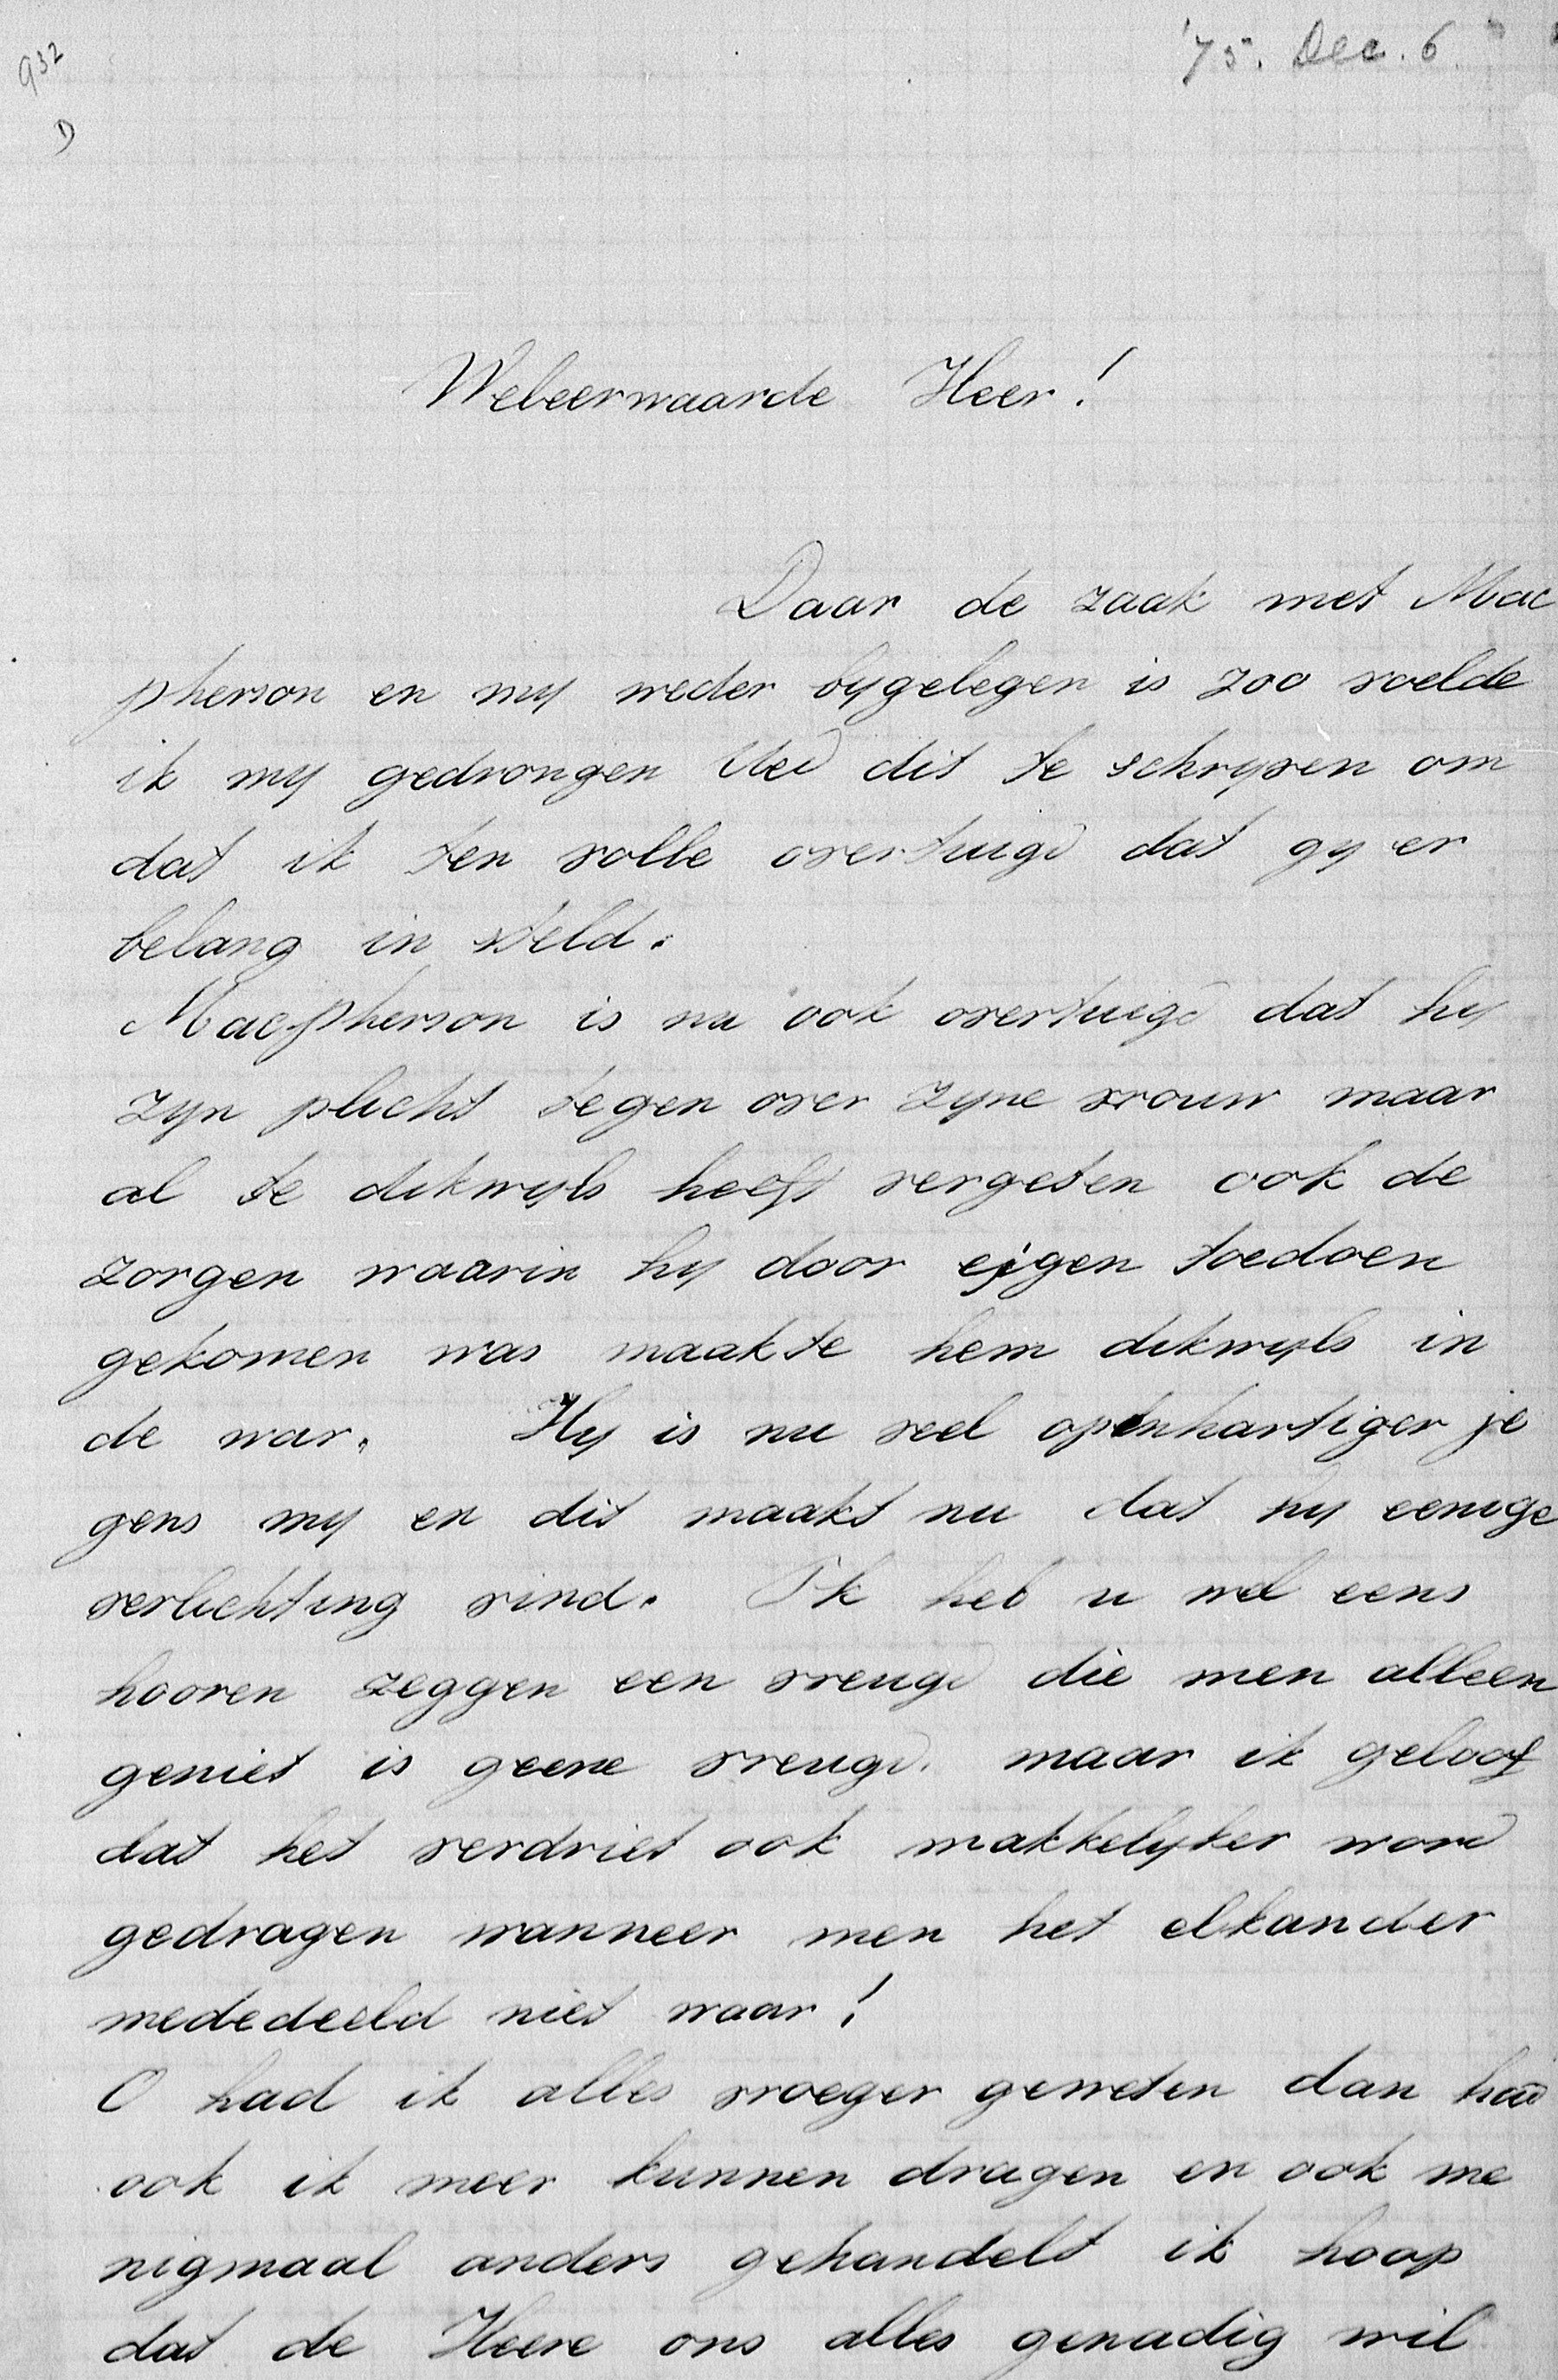 932
D
'75. Dec. 6
Weleerwaarde Heer!
Daar de zaak met Mac
pherson en my weder bygelegen is zoo voelde
ik my gedrongen Ued dit te schryven om
dat ik ten volle overtuigd dat gy er
belang in steld.
Macpherson is nu ook overtuigd dat hy
zyn plicht tegen over zyne vrouw maar
al te dikwyls heeft vergeten ook de
zorgen waarin hy door eigen toedoen
gekomen was maakte hem dikwyls in
de war. Hy is nu veel openhartiger je
gens my en dit maakt nu dat hy eenige
verlichting vind. Ik heb u wel eens
hooren zeggen een vreugd die men alleen
geniet is geene vreugd. maar ik geloof
dat het verdriet ook makkelyker word
gedragen wanneer men het elkander
mededeeld niet waar!
O had ik alles vroeger geweten dan had
ook ik meer kunnen dragen en ook me
nigmaal anders gehandelt ik hoop
dat de Heere ons alles genadig wil